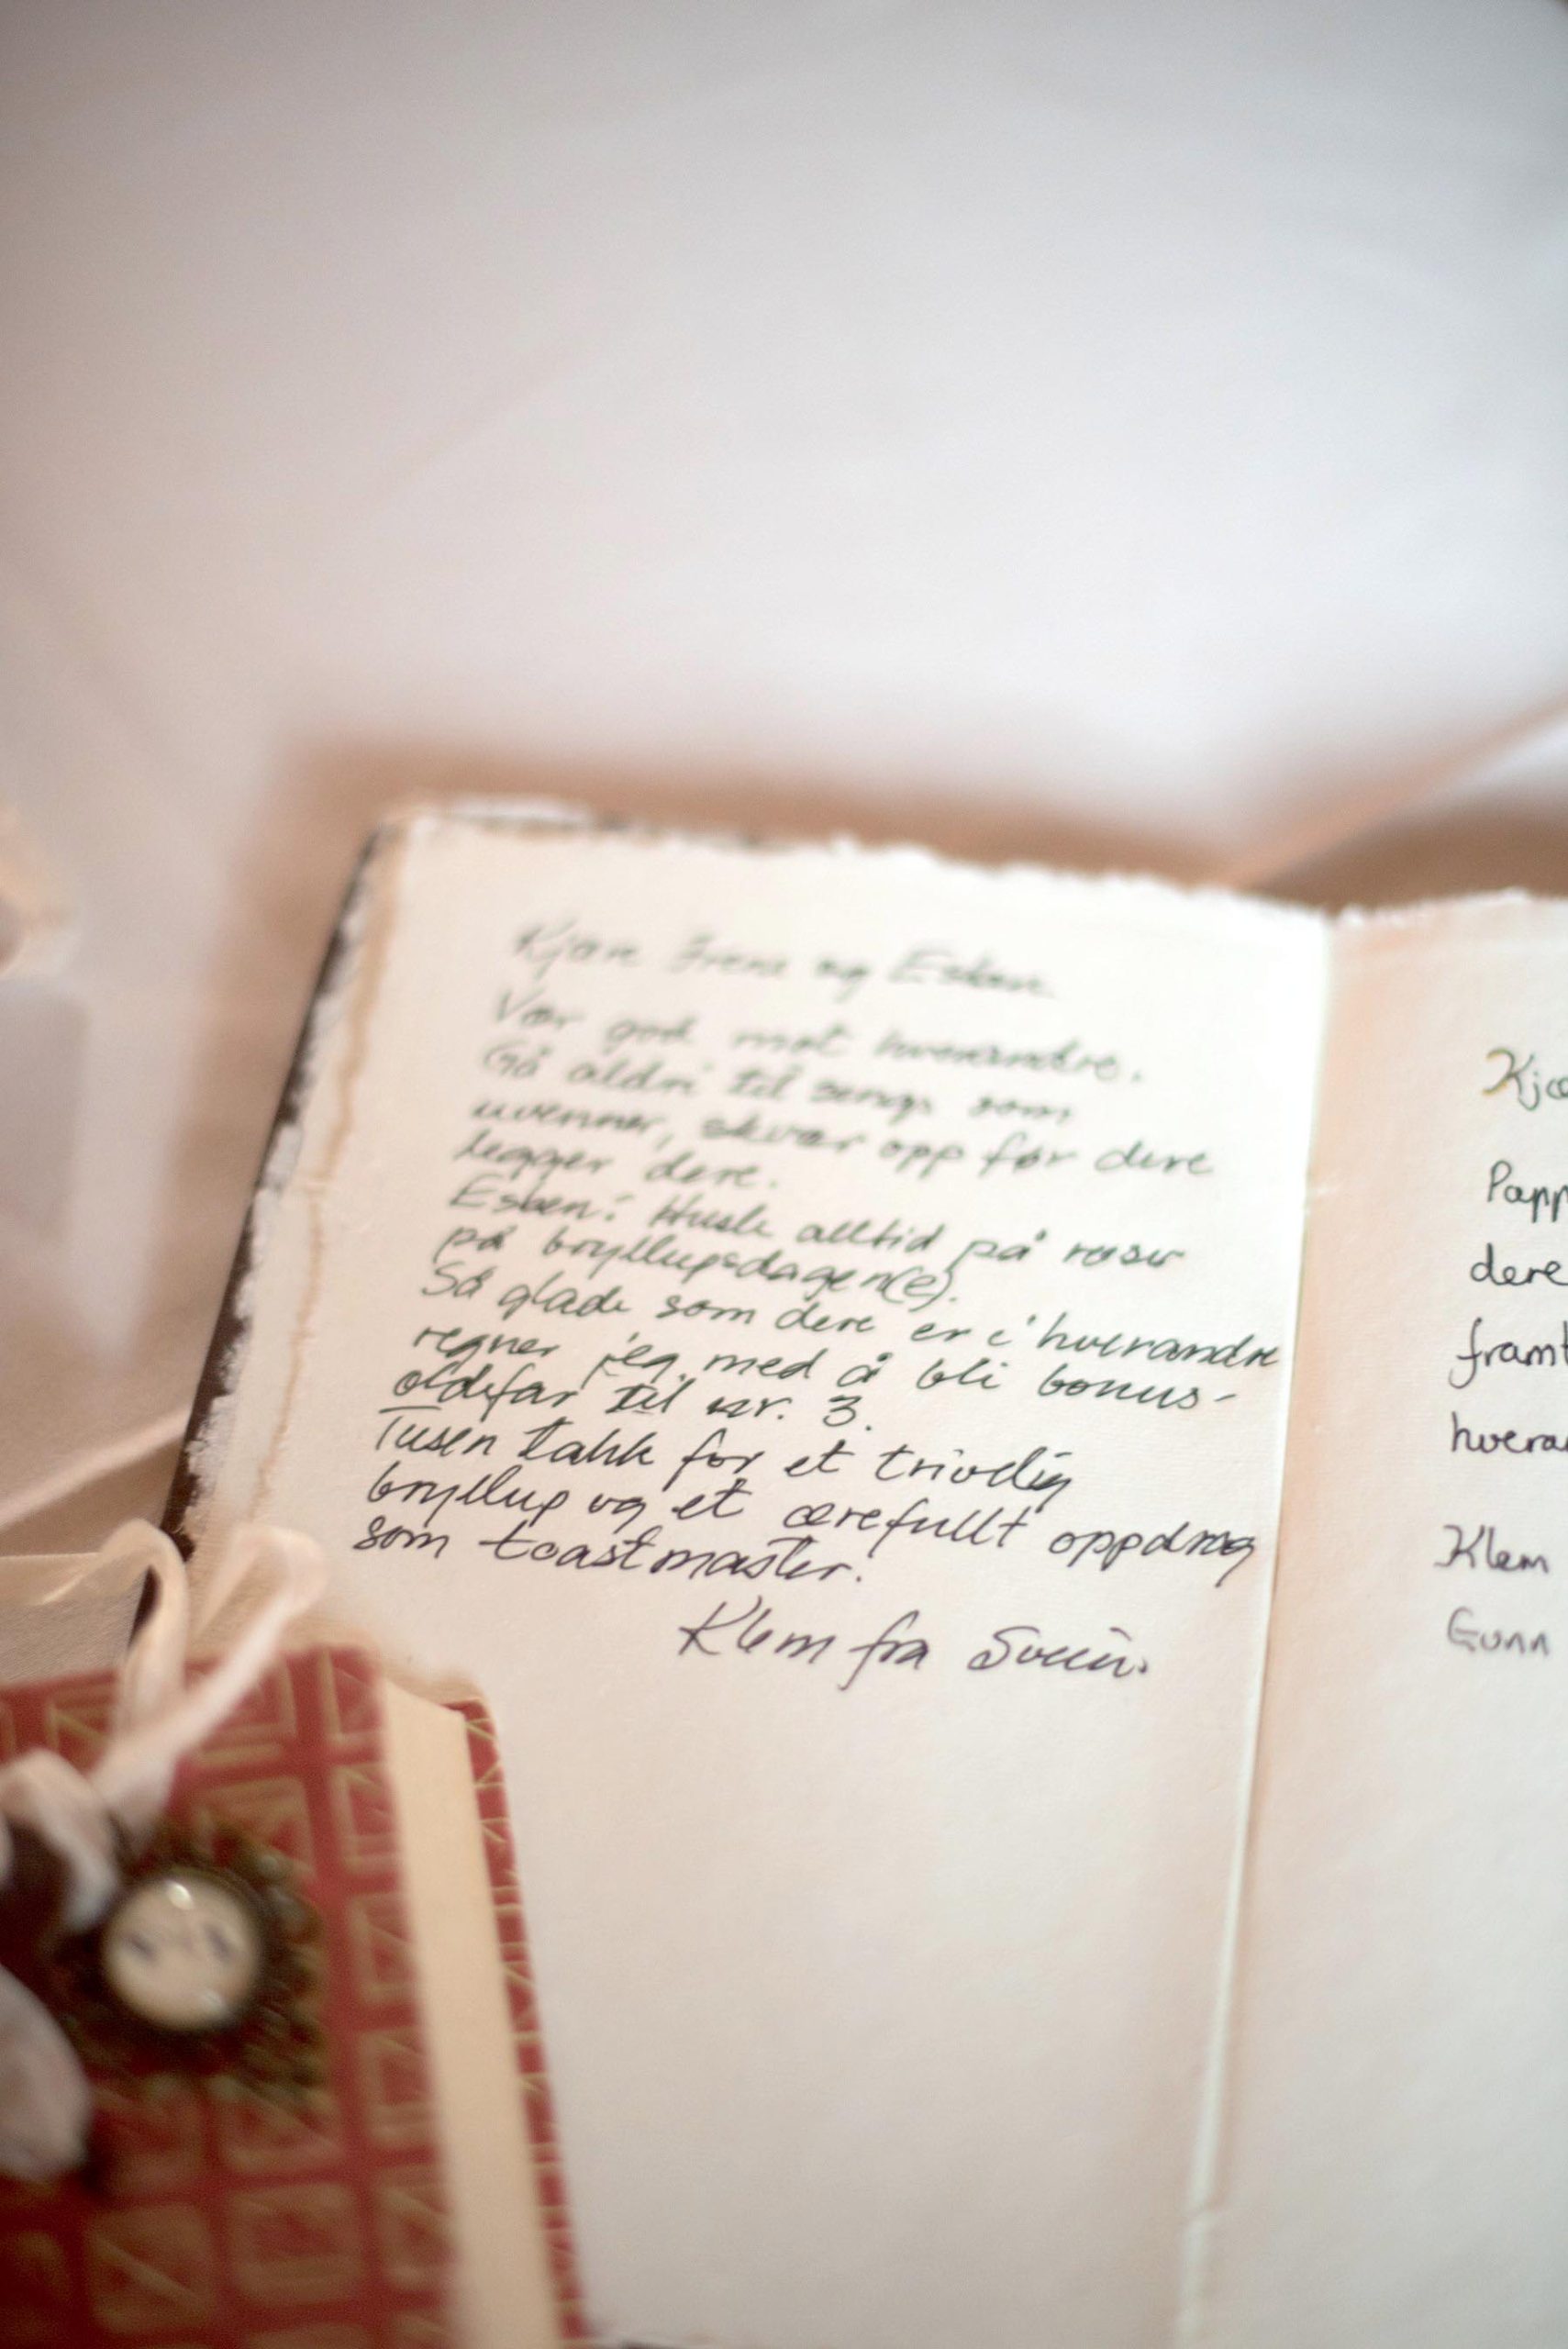 Kjære Irene og Esben
Vær god mot hverandre.
Gå aldri til sengs som
uvenner, skvær opp før dere
legger dere.
Esben: Husk alltid på roser
på bryllupsdagen(e).
Så glade som dere er i hverandre
regner jeg med å bli bonus-
oldefar til nr. 3.
Tusen takk for et trivelig
bryllup og et ærefullt oppdrag
som toastmaster!
Klem fra Svein.
Kjæ
Papp
dere
framt
hvera
Klem
Gunn